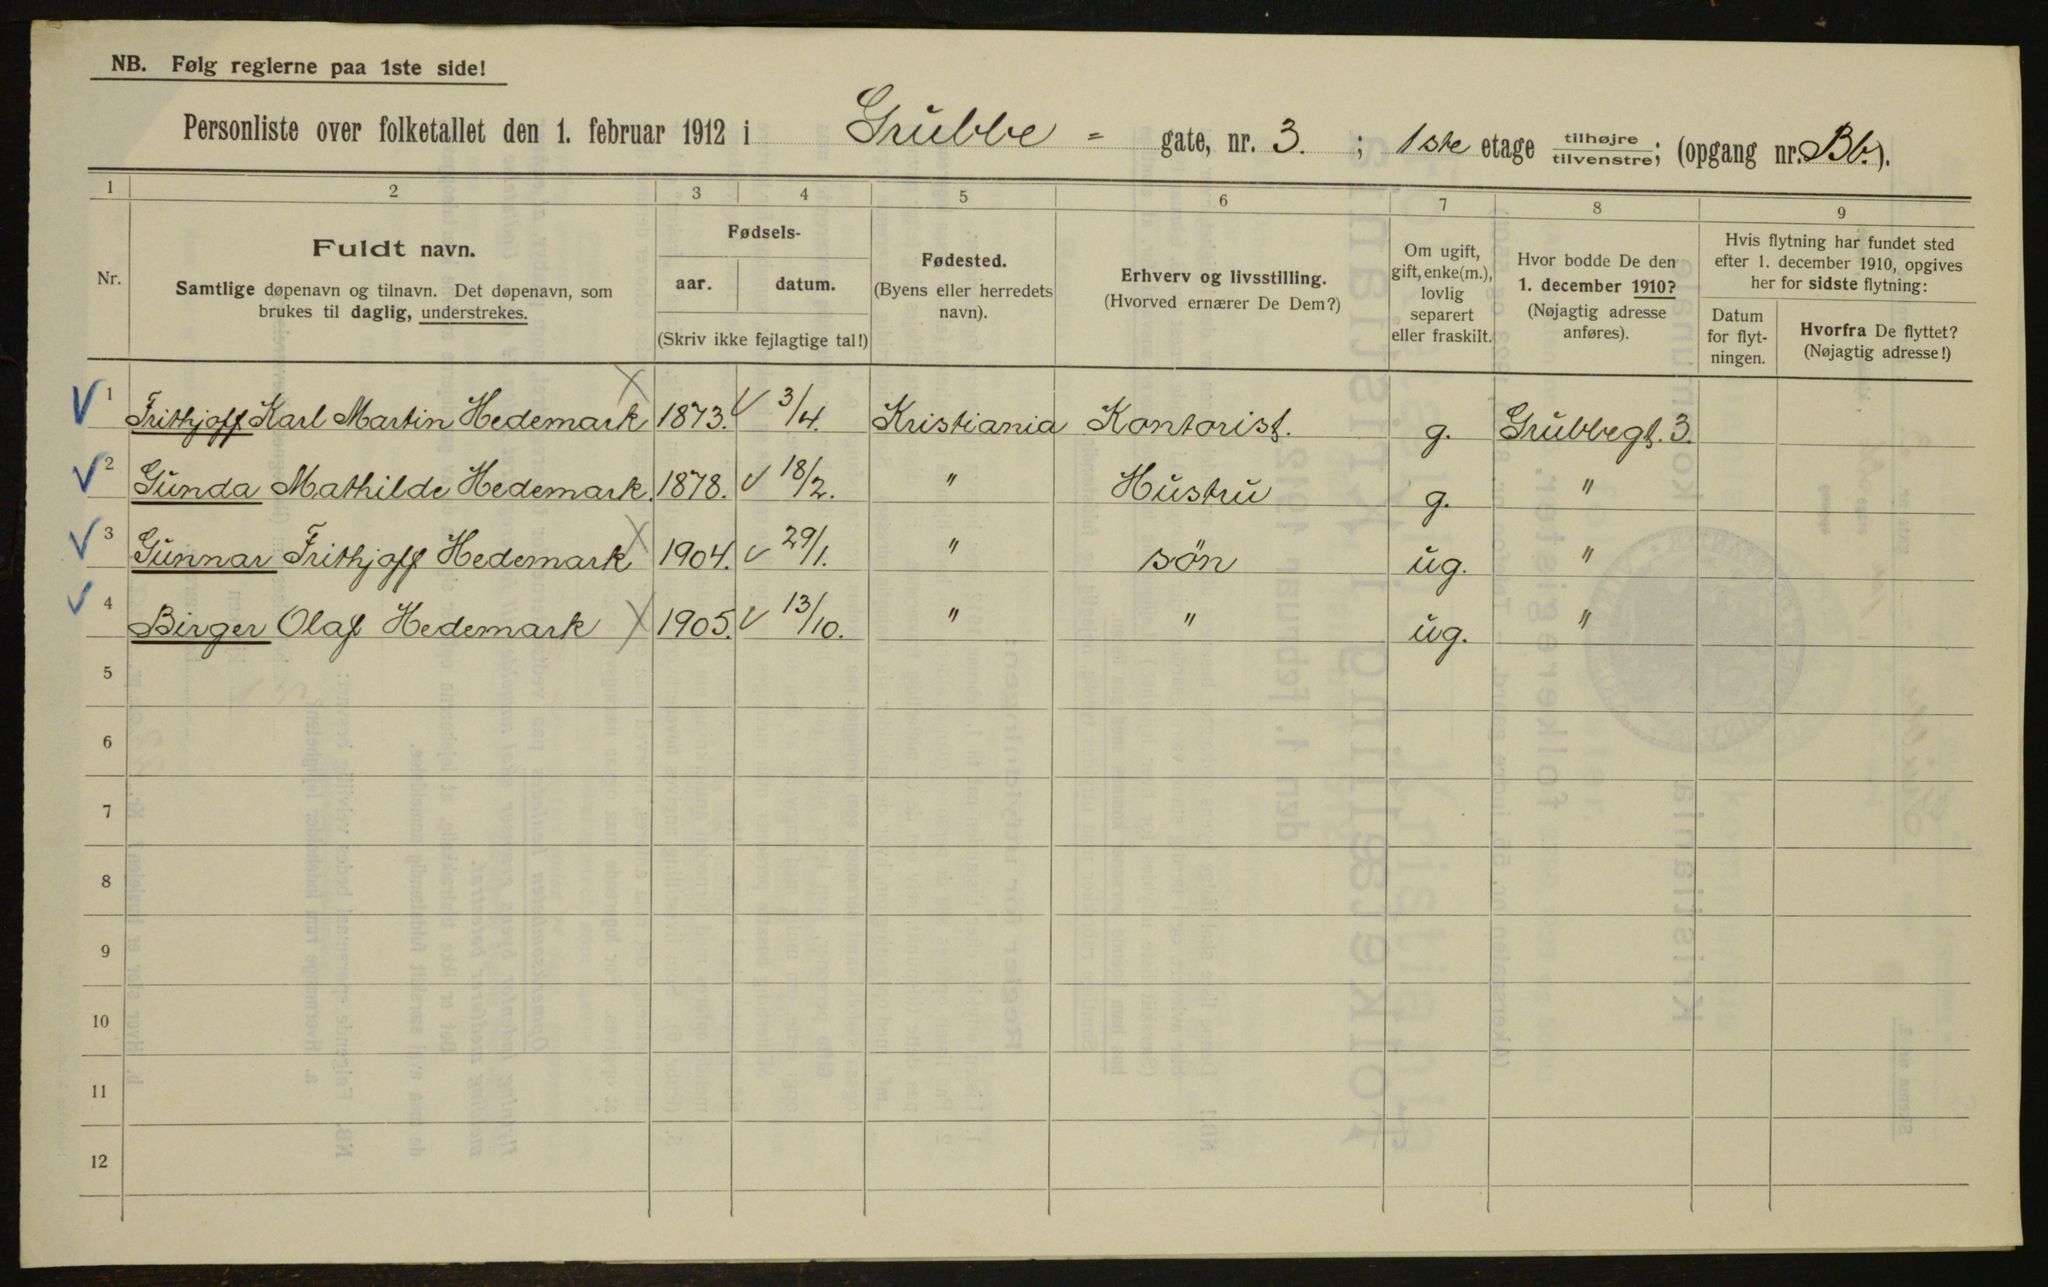 NB. Følg reglerne paa 1ste side!
Personliste over folketallet den 1. februar 1912 i Grubbe = gate, nr. 3. ; 1ste etage tilhøjre tilvenstre; (opgang nr. Bb.).
1 2 3 4 5 6 7 8 9
Nr.
Fuldt navn.
Samtlige døpenavn og tilnavn. Det døpenavn, som
brukes til daglig, understrekes.
Fødsels-
aar. datum.
(Skriv ikke fejlagtige tal!)
Fødested.
(Byens eller herredets
navn).
Erhverv og livsstilling.
(Hvorved ernærer De Dem?)
Om ugift,
gift, enke(m.),
lovlig
separert
eller fraskilt.
Hvor bodde De den
1. december 1910?
(Nøjagtig adresse
anføres).
Hvis flytning har fundet sted
efter 1. december 1910, opgives
her for sidste flytning:
Datum
for flyt-
ningen.
Hvorfra De flyttet?
(Nøjagtig adresse!)
1 Frithjoff Karl Martin Hedemark 1873. 3/4. Kristiania Kontorist. g. Grubbegt. 3.
2 Gunda Mathilde Hedemark. 1878. 18/2. " Hustru g. "
3 Gunnar Frithjoff Hedemark 1904. 29/1. " søn ug. "
4 Birger Olaf Hedemark 1905. 13/10. " " ug. "
5
6
7
8
9
10
11
12